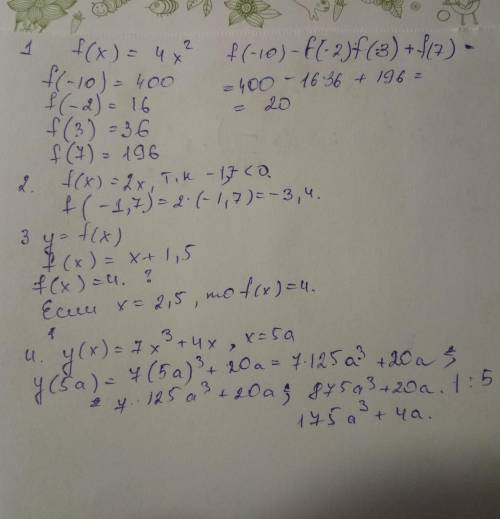 1 f(x) = 4x² f(-10) - f(-2)f(3) + f(7) -
f(-10) = 400 = 400 - 16·36 + 196 =
f(-2) = 16 = 20
f(3) = 36
f(7) = 196
2. f(x) = 2x, т.к -1,7 < 0.
f(-1,7) = 2·(-1,7) = -3,4.
3 y = f(x)
f(x) = x + 1,5
f(x) = 4. ?
Если x = 2,5, то f(x) = 4.
4. y(x) = 7x³ + 4x, x = 5a
y(5a) = 7(5a)³ + 20a = 7·125a³ + 20a;
= 7·125a³ + 20a; 875a³ + 20a. | : 5
175a³ + 4a.